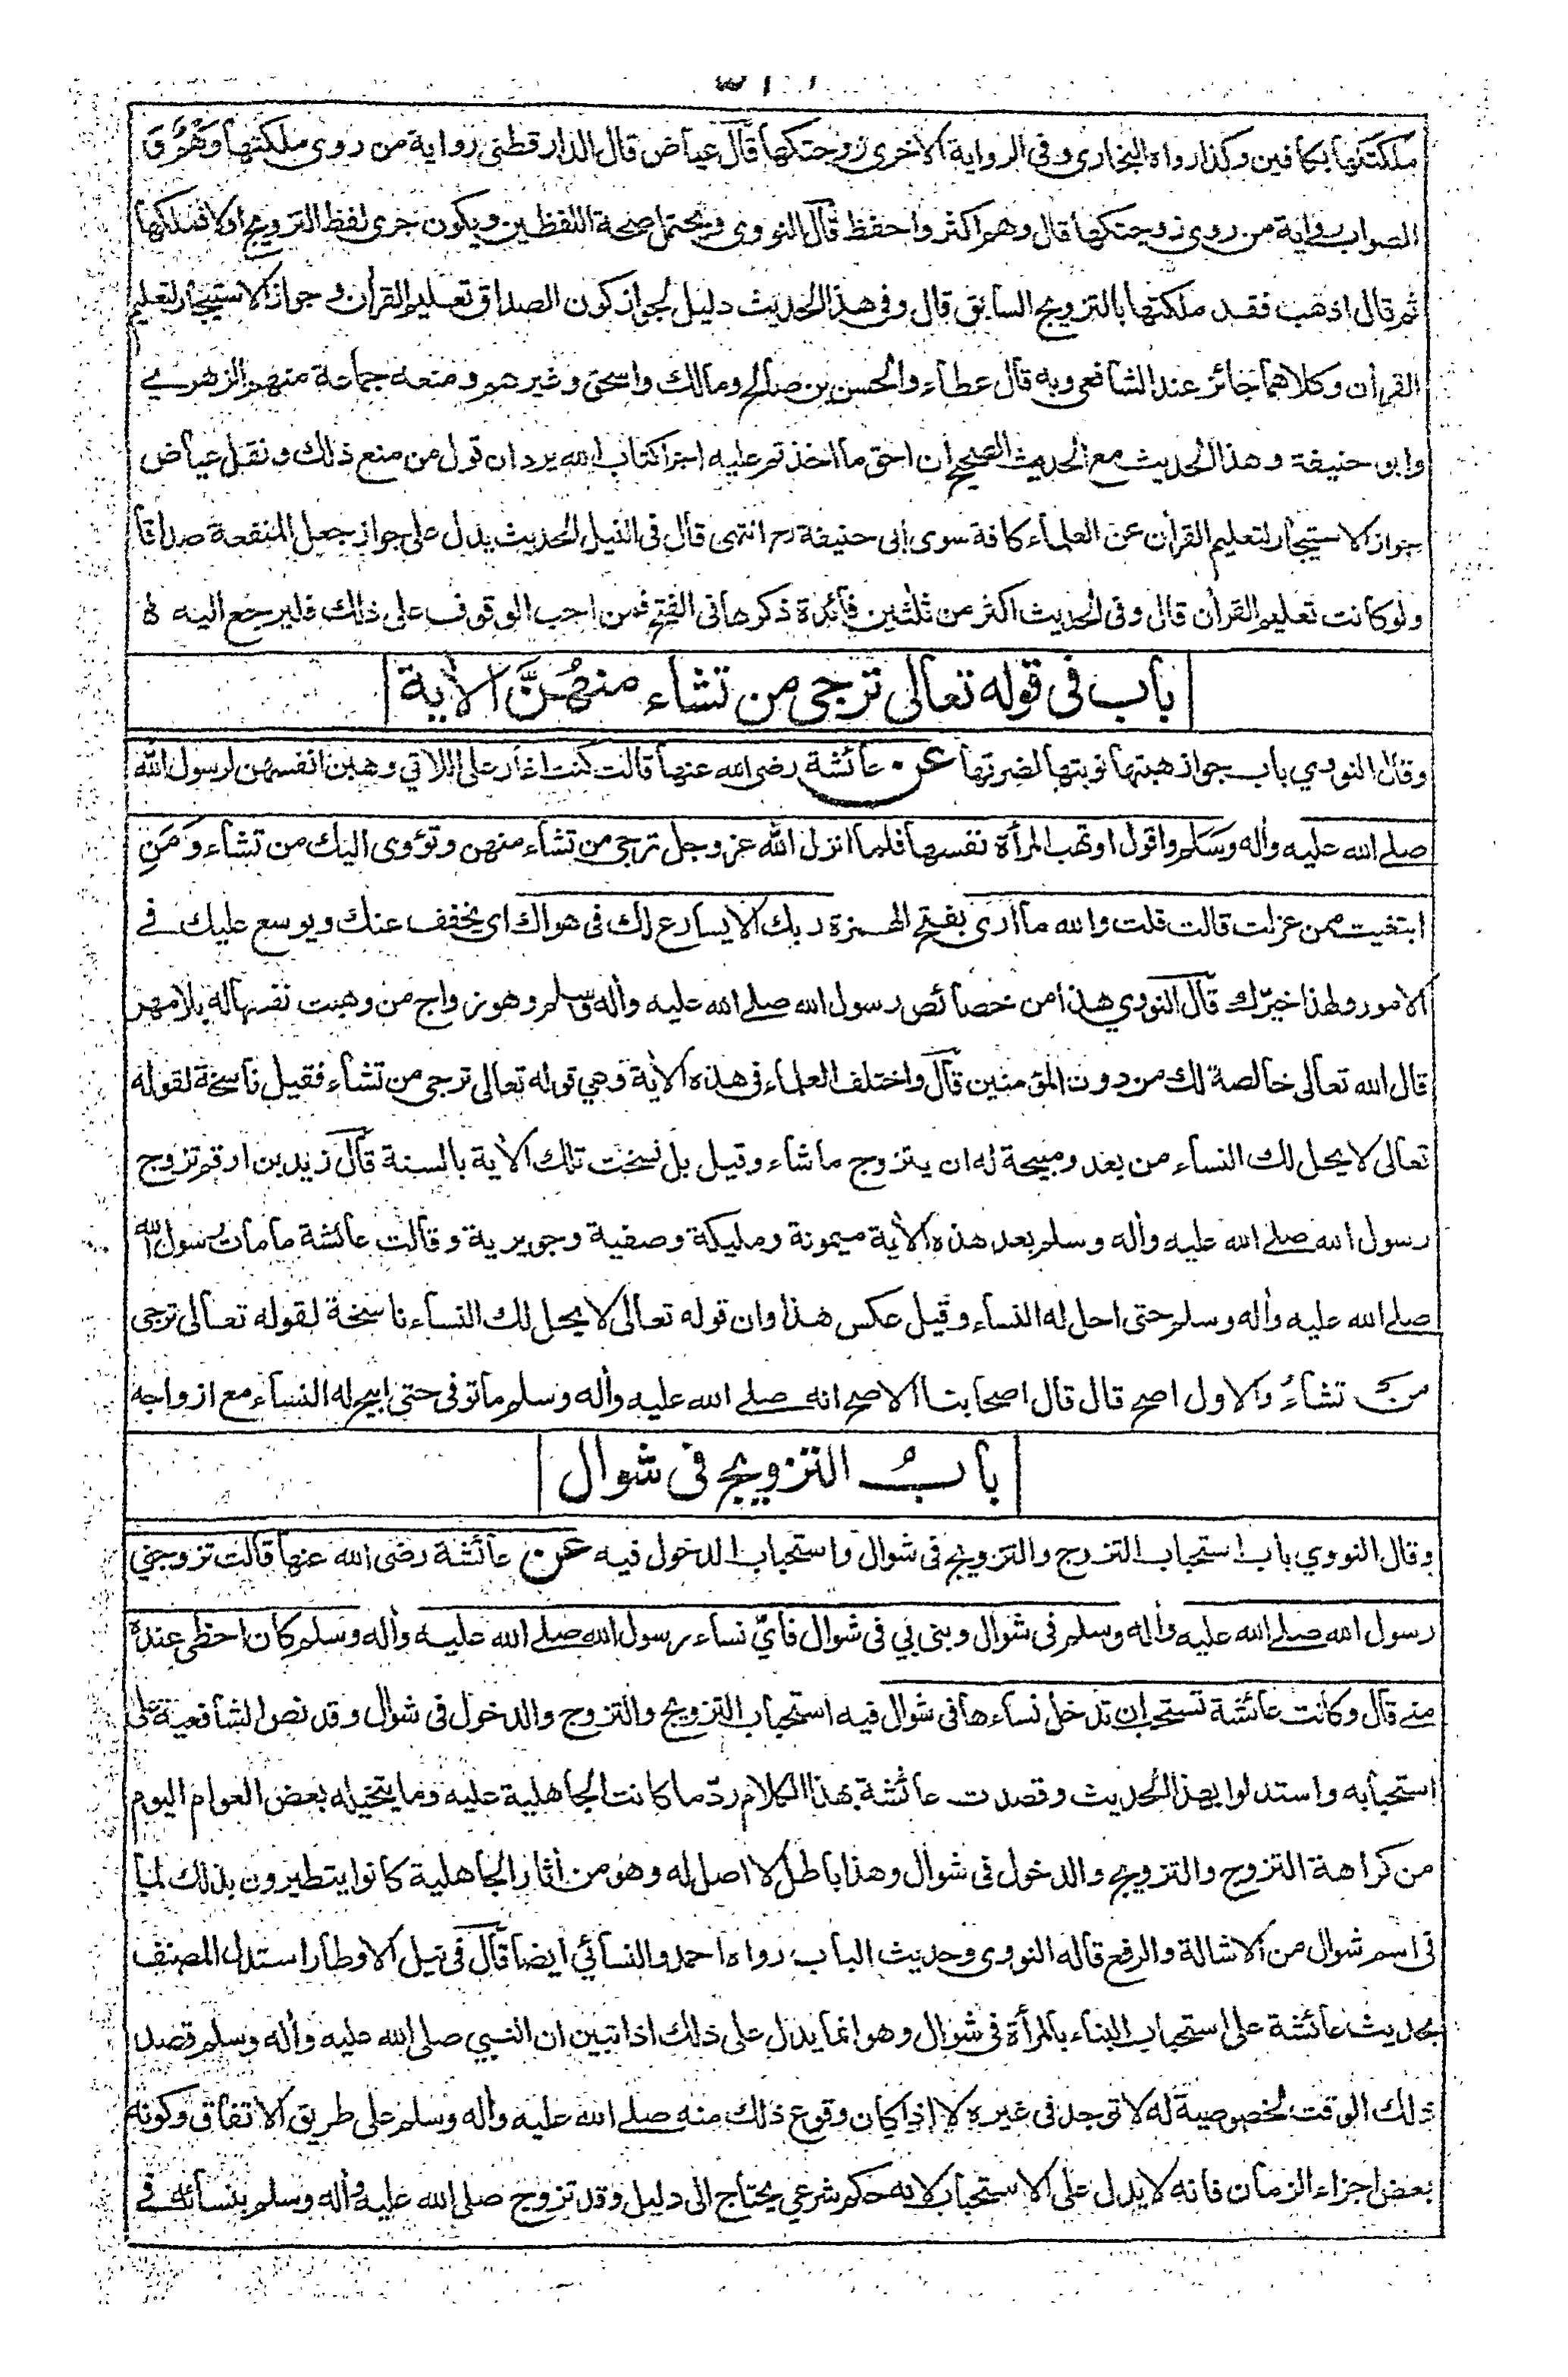 ملكتكها بكافين وكذا رواه البخاري وفي الرواية الاخرى زوجتكها قال عياض قال الدارقطني رواية من روى ملكتها وهم و
الصواب رواية من روى زوجتكها قال وهم اكثر واحفظ قال النووي ويحتمل صحة اللفظين ويكون جرى لفظ التزويج اولا فملكها
ثم قال اذهب فقد ملكتها بالتزويج السابق قال وفي هذا الحديث دليل لجواز كون الصداق تعليم القرأن وجواز الاستيجار لتعليم
القرأن وكلاهما جائز عند الشافعي وبه قال عطاء والحسن بن صالح ومالك واسحق وغيرهم ومنعه جماعة منهم الزهري
وابو حنيفة وهذا الحديث مع الحديث الصحيح ان احق ما اخذتم عليه اجرا كتاب الله يردان قول من منع ذلك ونقل عياض
جواز الاستيجار لتعليم القرأن عن العلماء كافة سوى ابي حنيفة رح انتهى قال في النيل الحديث يدل على جواز جعل المنفعة صداقا
ولو كانت تعليم القرأن قال وفي الحديث اكثر من ثلثين فائدة ذكرها في الفتح فمن احب الوقوف على ذلك فليرجع اليه
باب في قوله تعالى ترجي من تشاء منهُنَّ الأية
وقال النووي باب جواز هبتها نوبتها لضرتها عن عائشة رضي الله عنها قالت كنت اغار على اللاتي وهبن انفسهن لرسول الله
صلى الله عليه وأله وسلم واقول اوتهب المرأة نفسها فلما انزل الله عز وجل ترجي من تشاء منهن وتؤوي اليك من تشاء وَمَنِ
ابتغيت ممن عزلت قالت قلت والله ما ارى بفتح الهمزة ربك الا يسارع لك في هواك اي يخفف عنك ويوسع عليك في
الامور ولهذا خيّرك قال النووي هذا من خصائص رسول الله صلى الله عليه وأله وسلم وهو زواج من وهبت نفسها له بلا مهر
قال الله تعالى خالصة لك من دون المؤمنين قال واختلف العلماء في هذه الأية وهي قوله تعالى ترجي من تشاء فقيل ناسخة لقوله
تعالى لا يحل لك النساء من بعد ومبيحة له ان يتزوج ما شاء وقيل بل نسخت تلك الأية بالسنة قال زيد بن ارقم تزوج
رسول الله صلى الله عليه وأله وسلم بعد هذه الأية ميمونة ومليكة وصفية وجويرية وقالت عائشة ما مات رسول الله
صلى الله عليه وأله وسلم حتى احل له النساء وقيل عكس هذا وان قوله تعالى لا يحل لك النساء ناسخة لقوله تعالى ترجي
من تشاءُ والاول اصح قال قال اصحابنا الاصح انه صلى الله عليه وأله وسلم ما توفي حتى ابيح له النساء مع ازواجه
بابُ التزويج في شوال
وقال النووي باب استحباب التزوج والتزويج في شوال واستحباب الدخول فيه عن عائشة رضي الله عنها قالت تزوجني
رسول الله صلى الله عليه وأله وسلم في شوال وبنى بي في شوال فأيّ نساء رسول الله صلى الله عليه وأله وسلم كان احظى عنده
مني قال وكانت عائشة تستحب ان تدخل نساءها في شوال فيه استحباب التزويج والتزوج والدخول في شوال وقد نص الشافعية على
استحبابه واستدلوا بهذا الحديث وقصدت عائشة بهذا الكلام ردّ ما كانت الجاهلية عليه وما يتخيله بعض العوام اليوم
من كراهة التزوج والتزويج والدخول في شوال وهذا باطل لا اصل له وهو من أثار الجاهلية كانوا يتطيرون بذلك لما
في اسم شوال من الاشالة والرفع قاله النووي وحديث الباب رواه احمد والنسائي ايضا قال في نيل الاوطار استدل المصنف
بحديث عائشة على استحباب البناء بالمرأة في شوال وهو انما يدل على ذلك اذا تبين ان النبي صلى الله عليه وأله وسلم قصد
ذلك الوقت لخصوصية له لا توجد في غيره لا اذا كان وقوع ذلك منه صلى الله عليه وأله وسلم على طريق الاتفاق وكونه
بعض اجزاء الزمان فانه لا يدل على الاستحباب لانه حكم شرعي يحتاج الى دليل وقد تزوج صلى الله عليه وأله وسلم بنسائه في